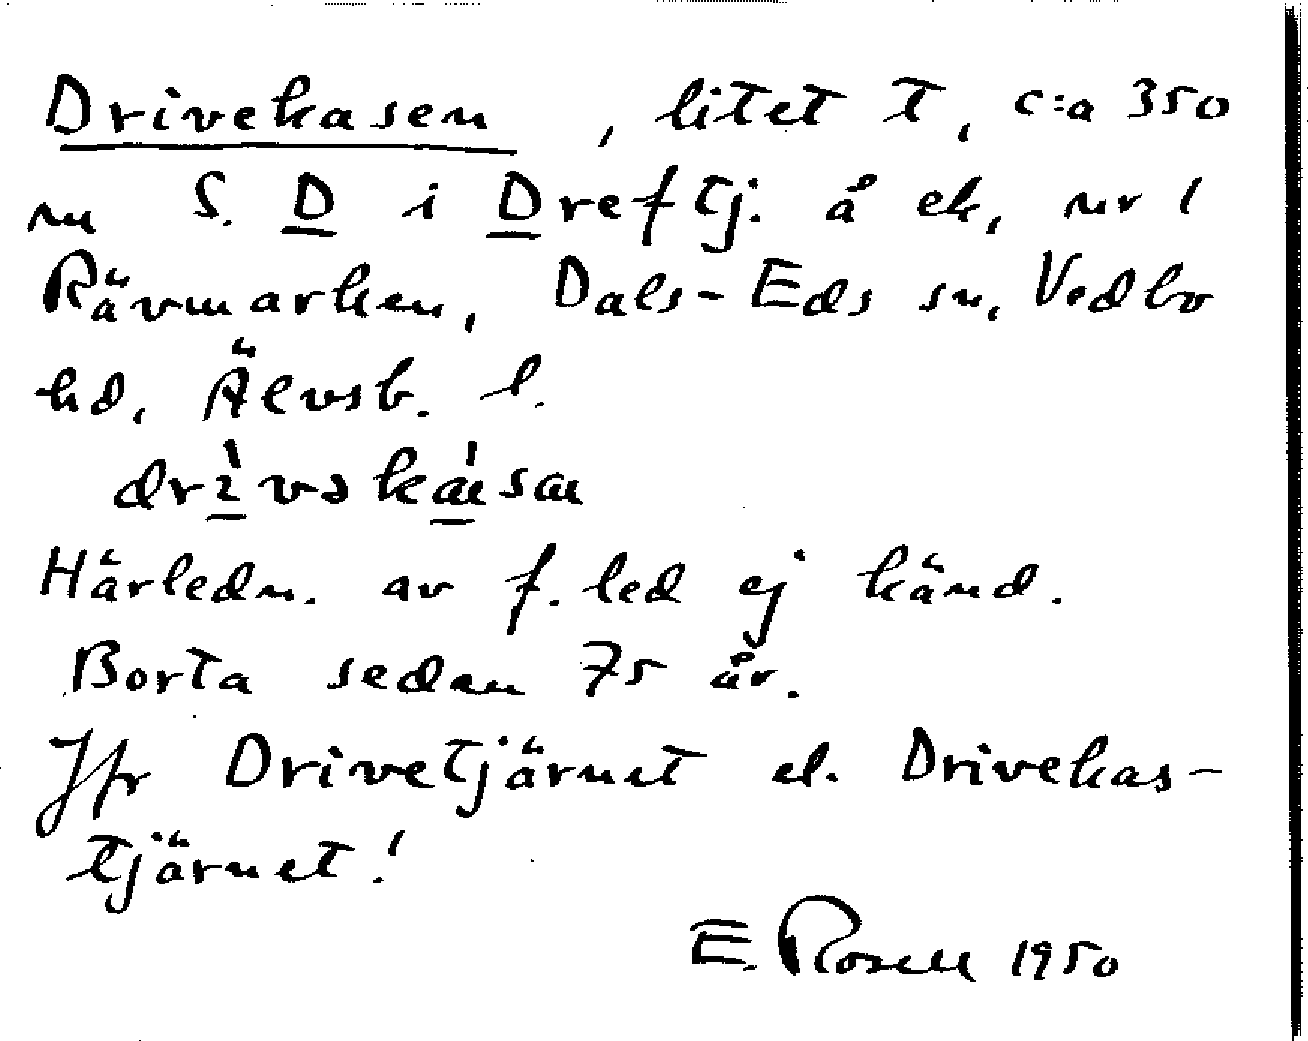 Drivekasen, litet T, c:a 350
m S. D i Dreftj. å ek. nr 1
Rävmarken, Dals-Eds sn, Vedbo
hd, Älvsb. l.
Härledn. av f. led ej känd.
Borta sedan 75 år.
Jfr Drivetjärnet el. Drivekas-
tjärnet!
E. Rosell 1950